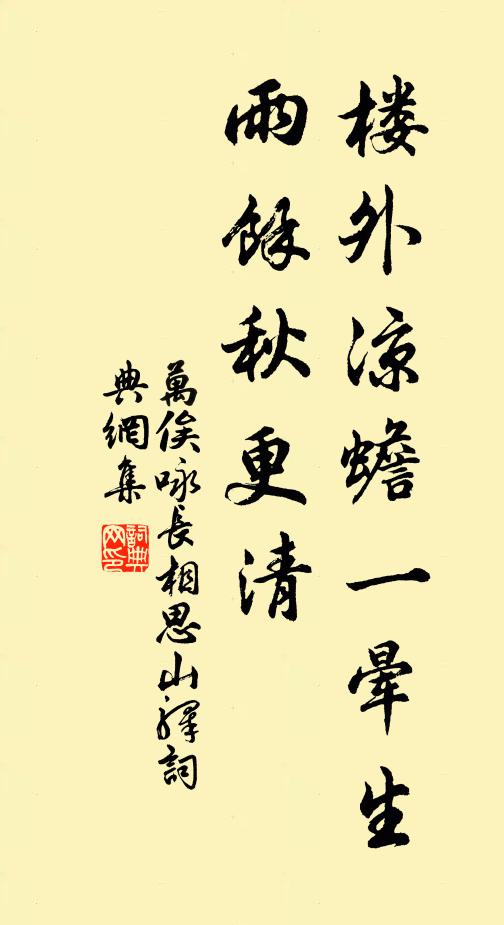 楼外凉蟾一晕生
雨餘秋更清
萬俟咏長相思山驛詞
典網集
詞典
网印